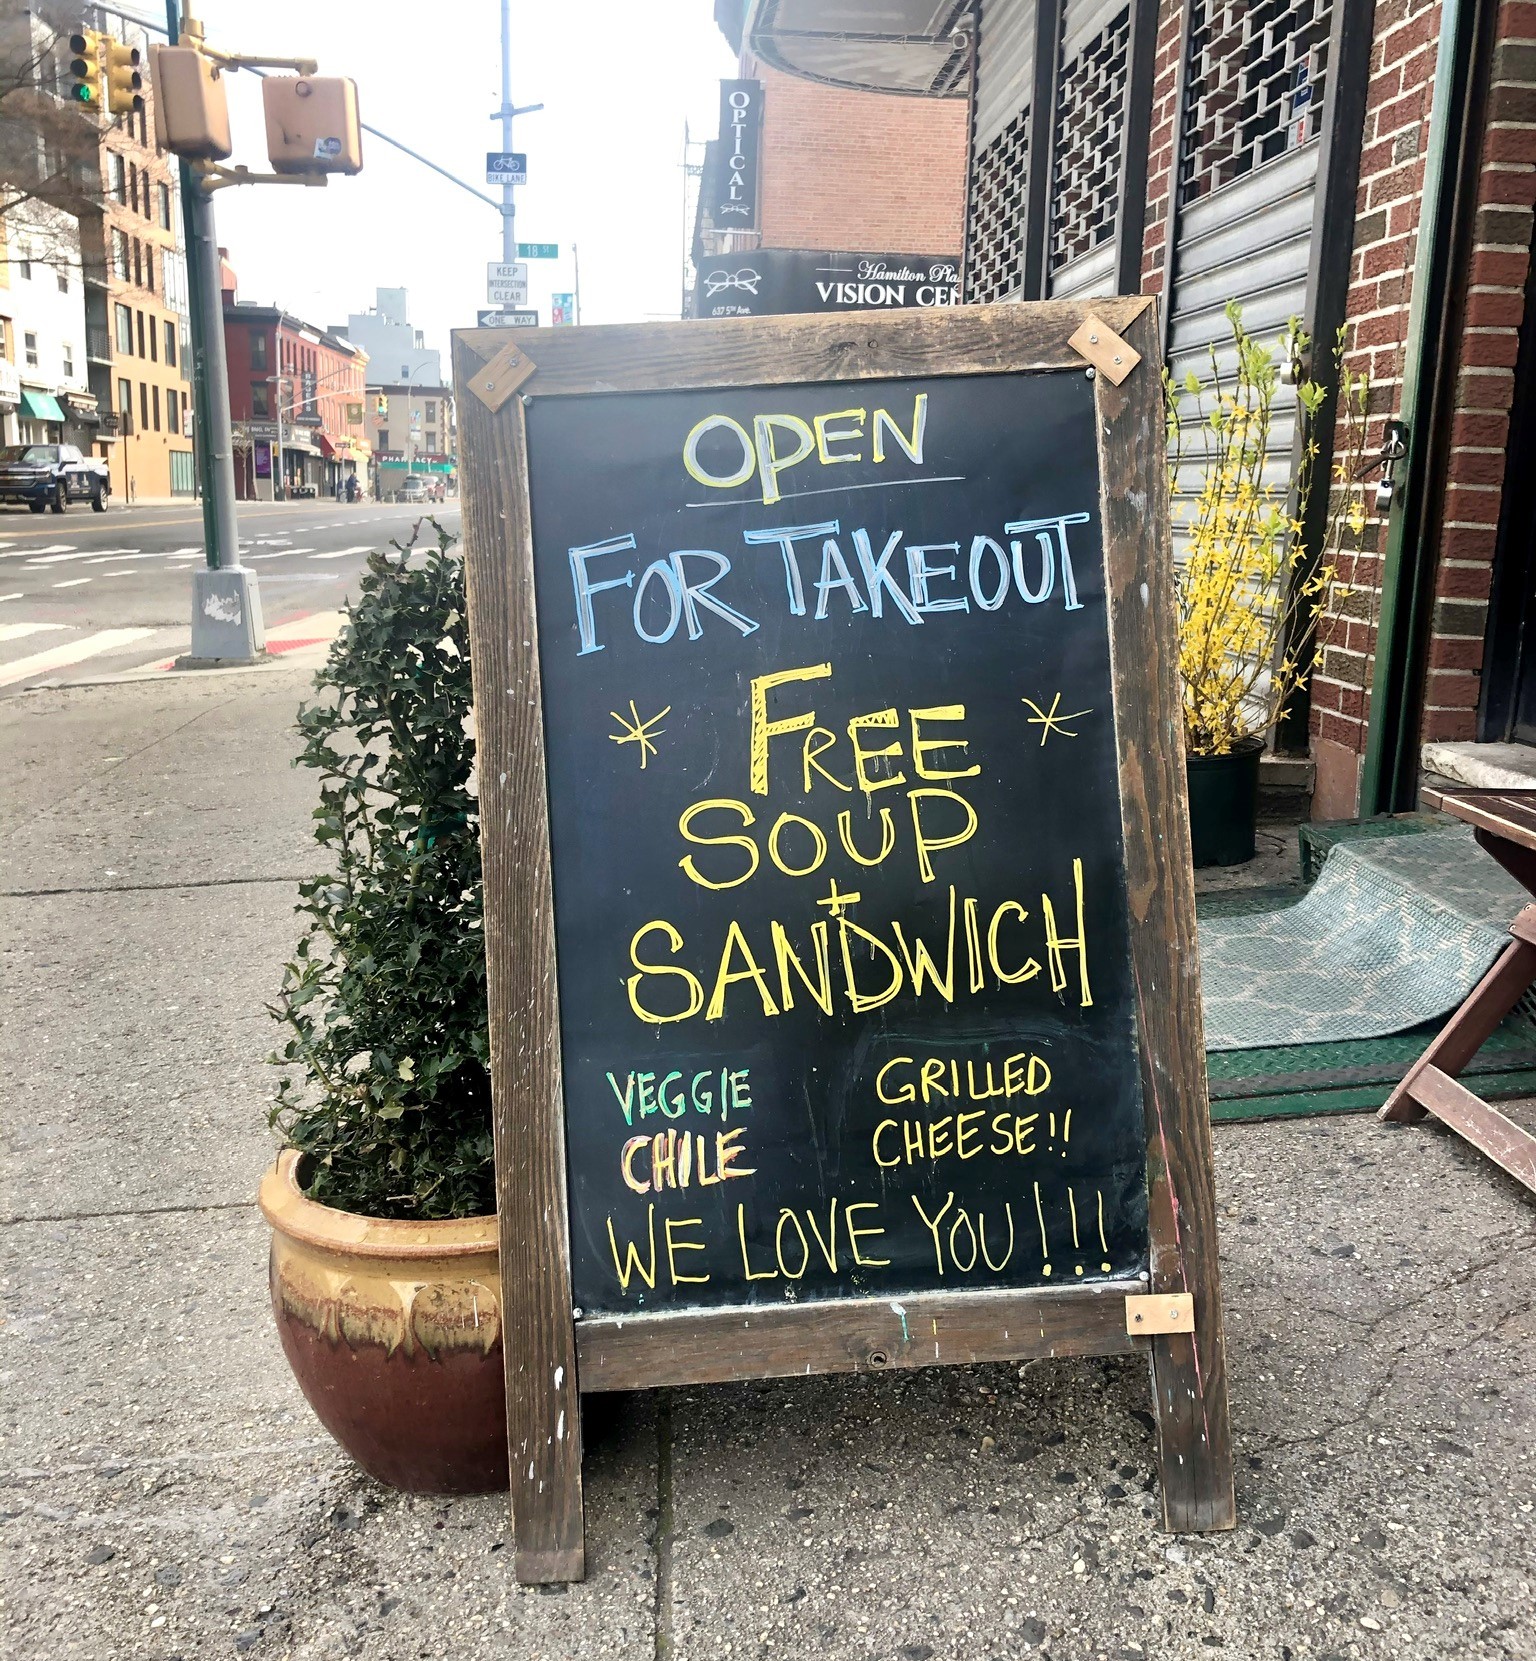 OPTICAL
BIKE LANE
18 ST
KEEP
INTERSECTION
CLEAR
ONE WAY
Hamilton Pla
VISION CEN
637 5TH Ave.
PHARMACY
OPEN
FOR TAKEOUT
* FREE *
SOUP
+
SANDWICH
VEGGIE
CHILE
GRILLED
CHEESE!!
WE LOVE YOU!!!